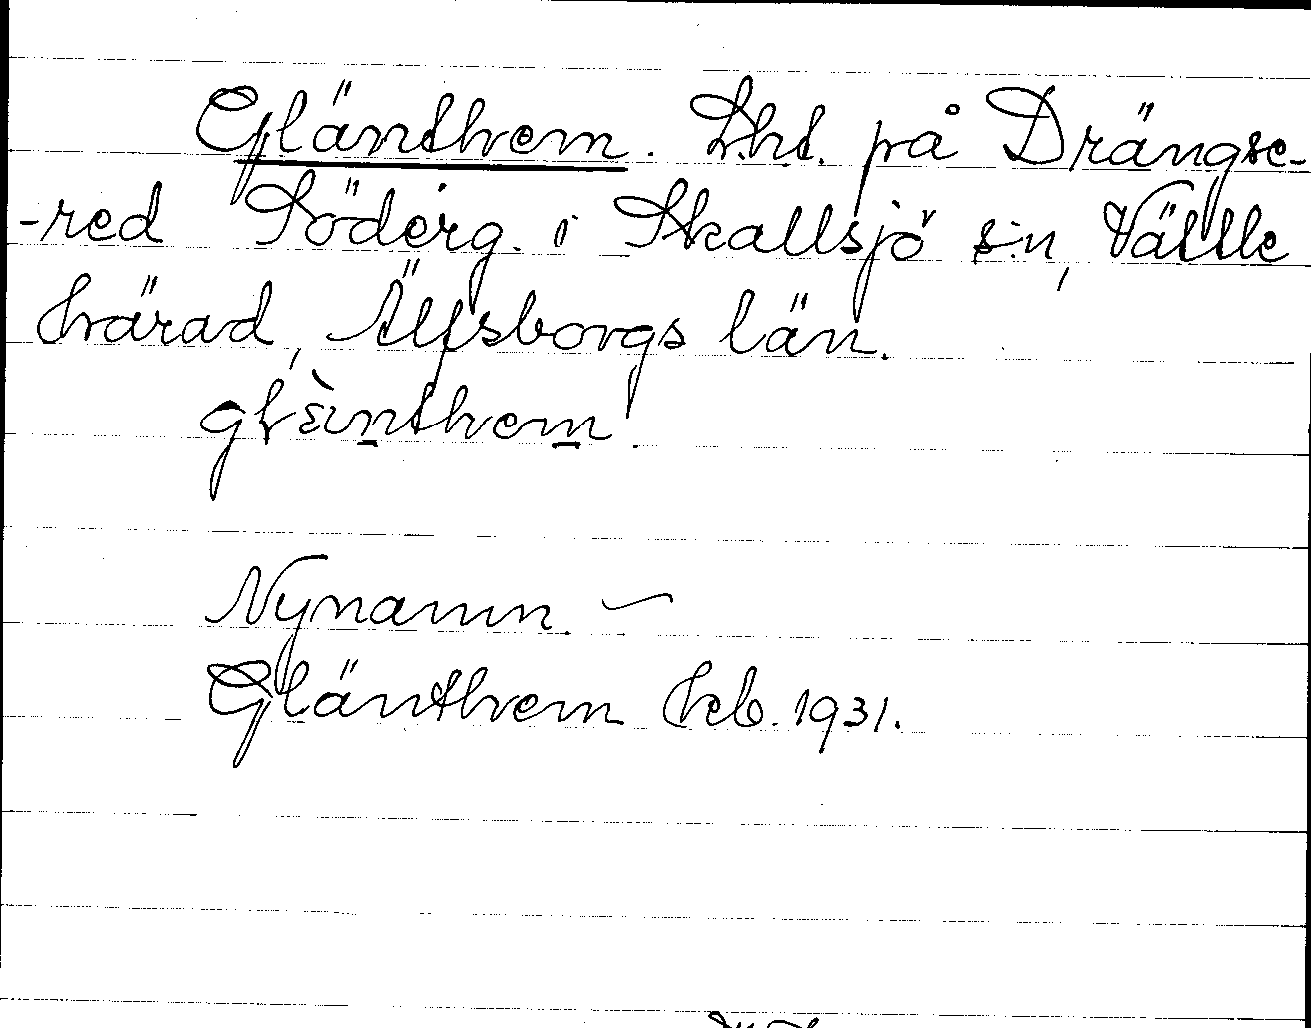 Glänthem. Lht. på Drängse-
-red Söderg. i Skallsjö s:n, Vättle
härad, Älfsborgs län.
Nynamn.
Glänthem hcb. 1931.